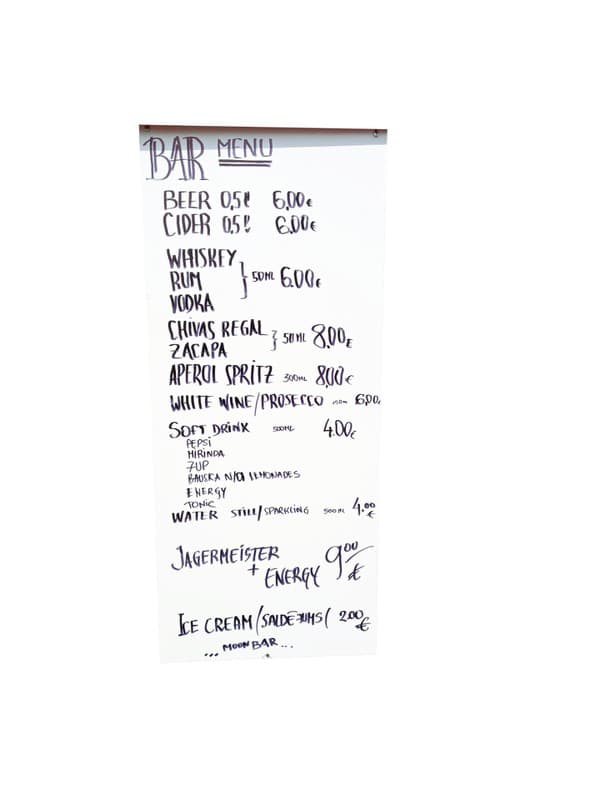 BAR MENU
BEER 0,5l 6,00€
CIDER 0,5l 6,00€
WHISKEY
RUM } 50ML 6.00€
VODKA
CHIVAS REGAL } 50ML 8,00€
ZACAPA
APEROL SPRITZ 300ML 8,00€
WHITE WINE/PROSECCO 6,00
SOFT DRINK 500ML 4.00€
PEPSI
MIRINDA
7UP
BAUSKA N/A LEMONADES
ENERGY
TONIC
WATER STILL/SPARKLING 500ML 4.00€
JAGERMEISTER
+ ENERGY 9,00/€
ICE CREAM/SALDĒJUMS/ 2.00€
... MOON BAR ...